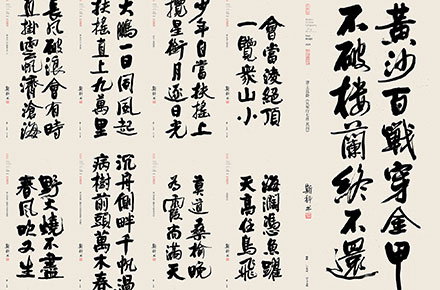 黃沙百戰穿金甲
不破樓蘭終不還
會當凌絕頂
一覽衆山小
少年自當扶搖上
攬星銜月逐日光
大鵬一日同風起
扶搖直上九萬里
長風破浪會有時
直掛雲帆濟滄海
海闊憑魚躍
天高任鳥飛
莫道桑榆晚
為霞尚滿天
沉舟側畔千帆過
病樹前頭萬木春
野火燒不盡
春風吹又生